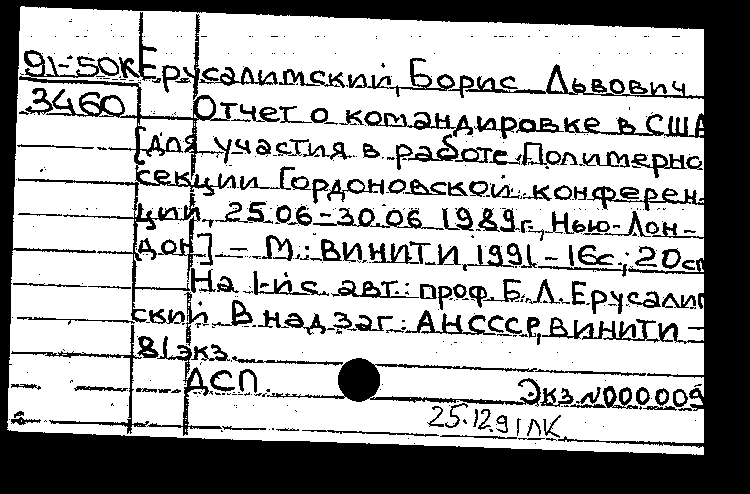 91-50К Ерусалимский, Борис Львович
3460 Отчет о командировке в США
[для участия в работе Полимерно
секции Гордоновской конферен-
ции, 25.06-30.06 1989г., Нью-Лон-
дон] - М.: ВИНИТИ, 1991 - 16с.; 20см
На 1-й с. авт.: проф. Б. Л. Ерусалим
ский. В надзаг.: АН СССР, ВИНИТИ -
81экз.
ДСП. Экз. N000009
25.12.91 ЛК.